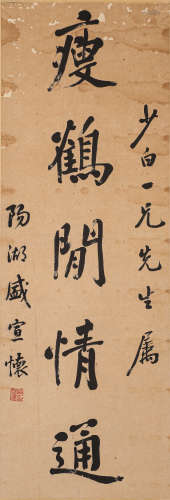 少白一兄先生属
瘦鶴閒情通
陽湖盛宣懷